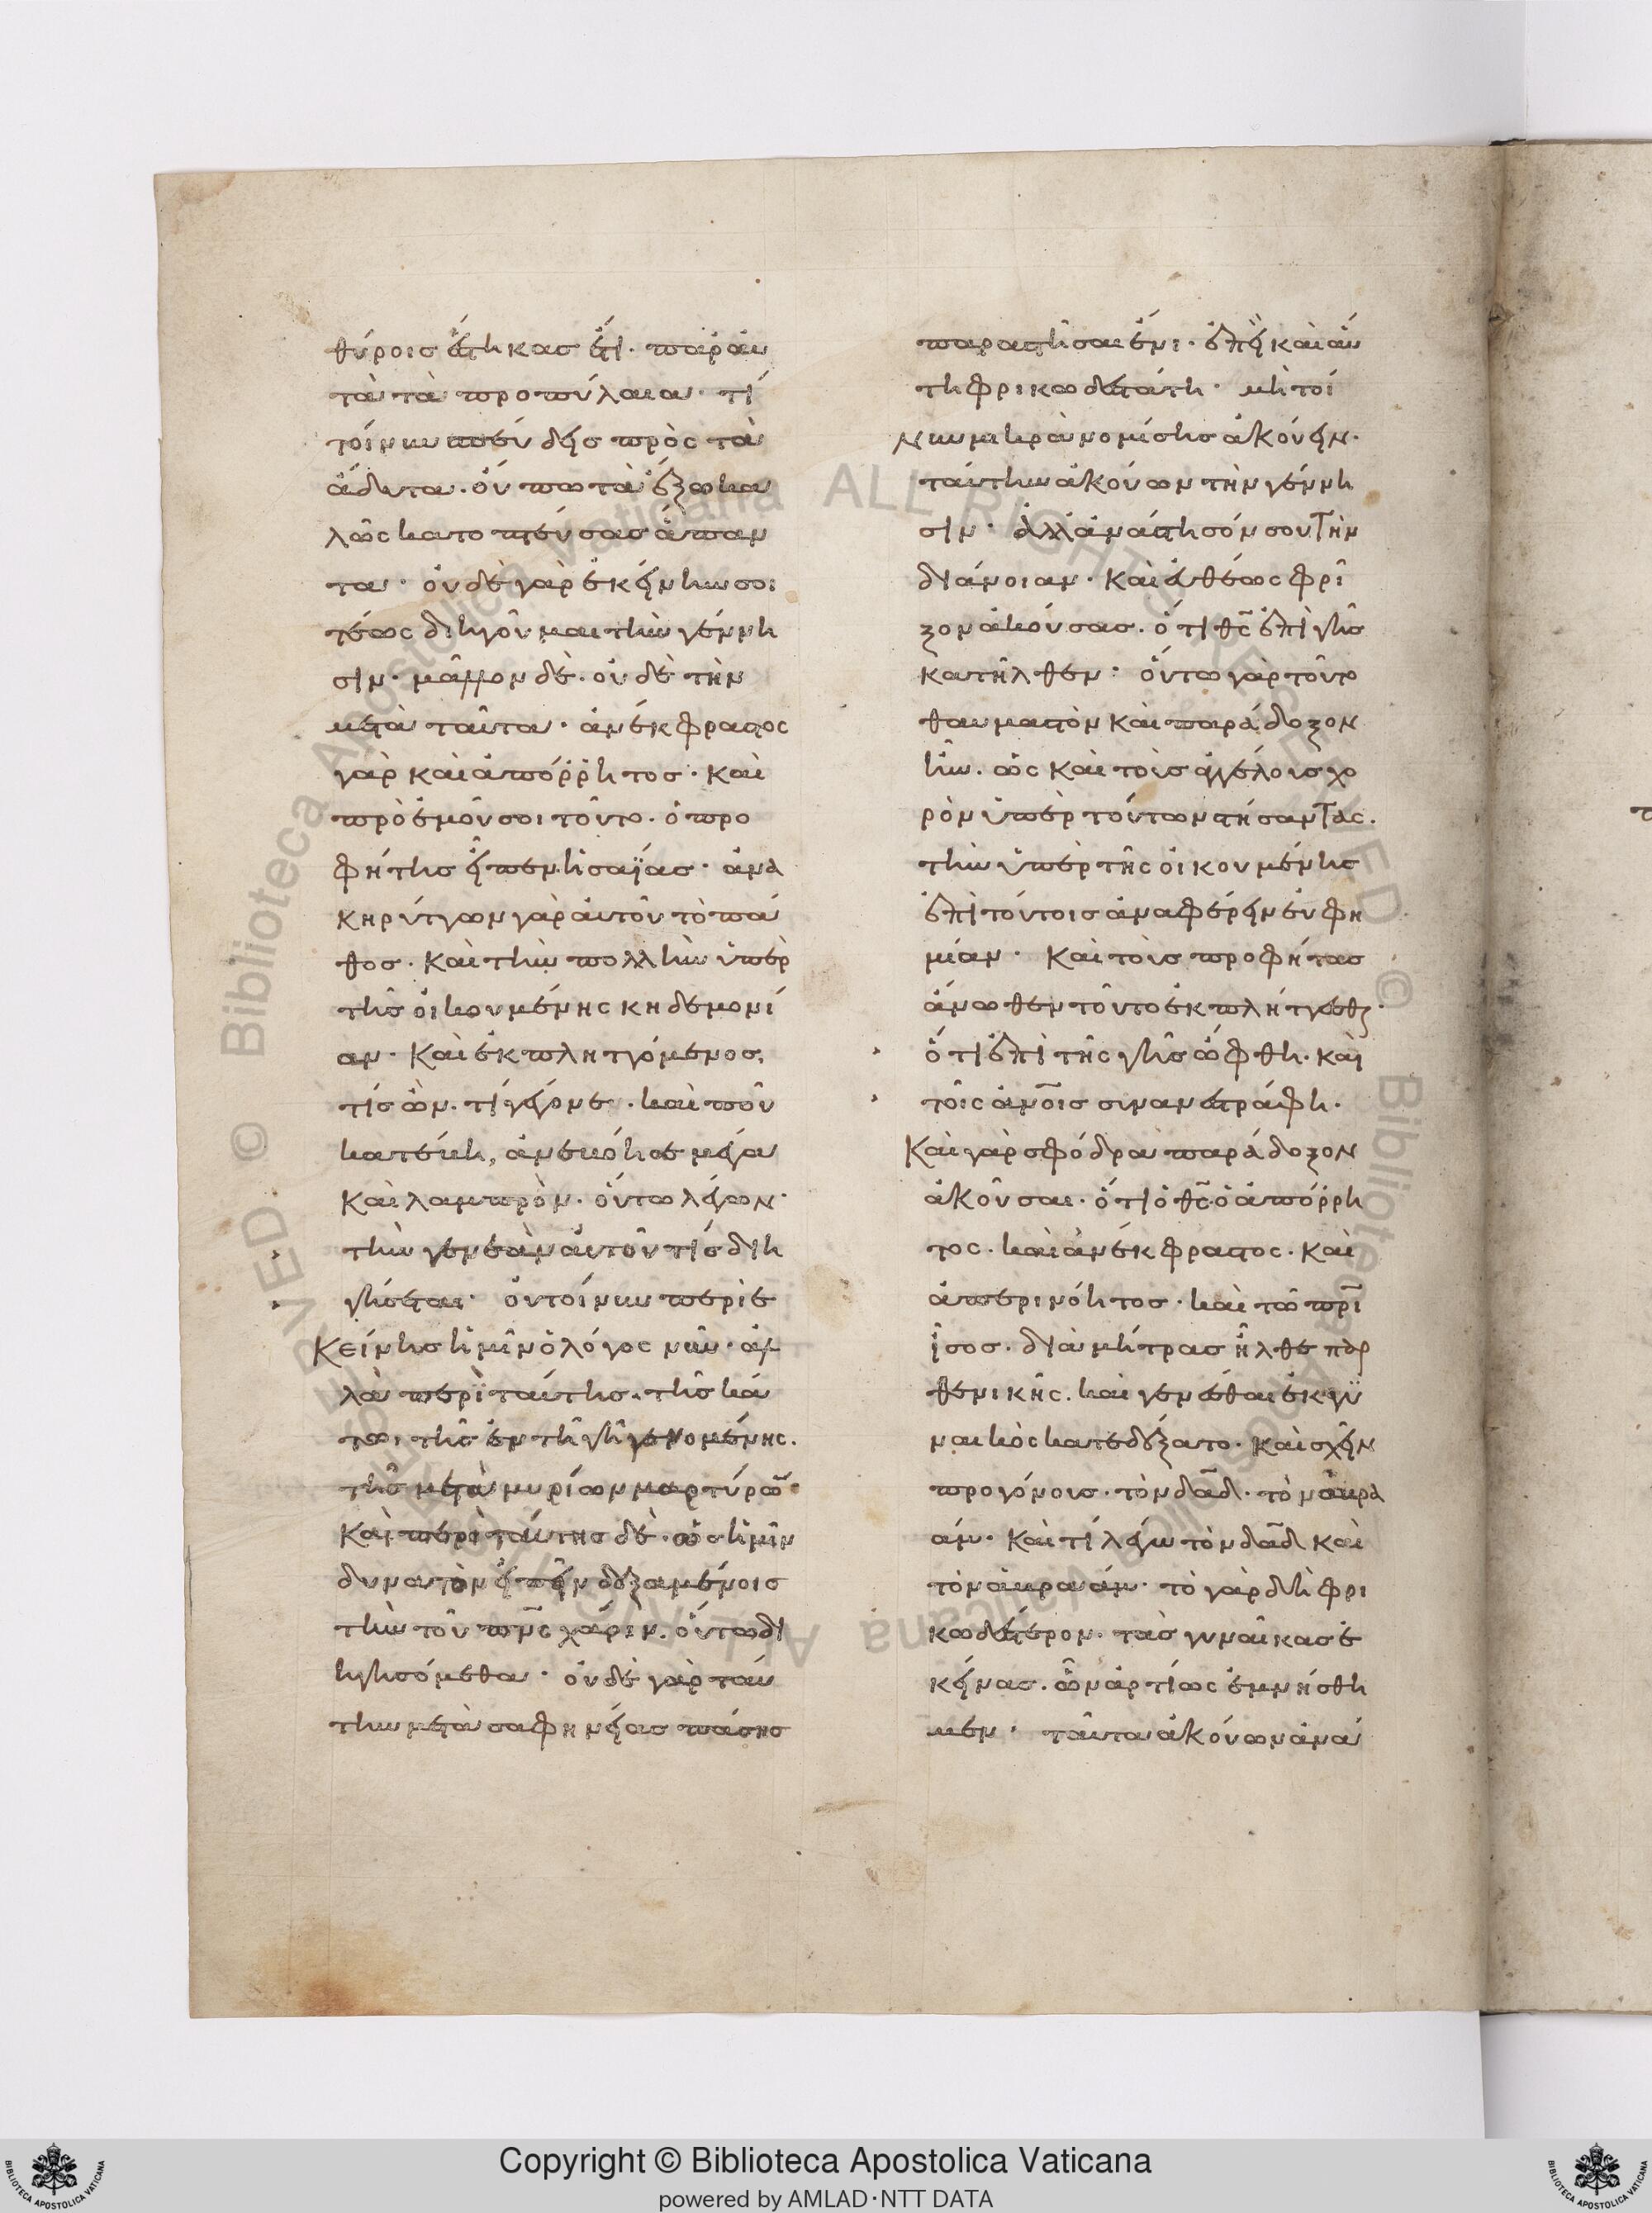 θύροις ἕστηκας ἔτι· παρ' αὐ
τὰ τὰ προπύλαια· τί
τοίνυν σπεύδεις πρὸς τὰ
ἄδυτα· οὔπω τὰ ἔξω κα
λῶς κατοπτεύσας ἅπαν
τα· οὐδὲ γὰρ ἐκείνην σοι
τέως διηγοῦμαι τὴν γέννη
σιν· μᾶλλον δὲ· οὐδὲ τὴν
μετὰ ταῦτα· ἀνέκφραστος
γὰρ καὶ ἀπόρρητος· καὶ
πρὸ ἐμοῦ σοι τοῦτο· ὁ προ
φήτης εἶπεν ἠσαΐας· ἀνα
κηρύττων γὰρ αὐτοῦ τὸ πά
θος· καὶ τὴν πολλὴν ὑπὲρ
τῆς οἰκουμένης κηδεμονί
αν· καὶ ἐκπληττόμενος,
τίς ὢν· τί γέγονε· καὶ ποῦ
κατέβη, ἀνεβόησε μέγα
καὶ λαμπρὸν· οὕτω λέγων·
τὴν γενεὰν αὐτοῦ τίς διη
γήσεται· οὐ τοίνυν περὶ ἐ
κείνης ἡμῖν ὁ λόγος νῦν· ἀλ
λὰ περὶ ταύτης· τῆς κά
τω· τῆς ἐν τῆ γῆ γενομένης·
τῆς μετὰ μυρίων μαρτύρω̅·
καὶ περὶ ταύτης δὲ· ὡς ἡμῖν
δυνατὸν εἰπεῖν δεξαμένοις
τὴν τοῦ πν̅ς χάριν· οὕτω δι
ηγησόμεθα· οὐδὲ γὰρ ταύ
την μετὰ σαφηνείας πάσης
παραστῆσαι ἔνι· ἐπεὶ καὶ αὕ
τη φρικωδεστάτη· μὴ τοί
νυν μικρὰ νομίσης ἀκούειν·
ταύτην ἀκούων τὴν γέννη
σιν· ἀλλ' ἀνάστησόν σου τὴν
διάνοιαν· καὶ εὐθέως φρῖ
ξον ἀκούσας· ὅτι θ̅ς ἐπὶ γῆς
κατῆλθεν· οὕτω γὰρ τοῦτο
θαυμαστὸν καὶ παράδοξον
ἦν· ὡς καὶ τοὺς ἀγγέλους χο
ρὸν ὑπὲρ τούτων στήσαντας·
τὴν ὑπὲρ τῆς οἰκουμένης
ἐπὶ τούτοις ἀναφέρειν εὐφη
μίαν· καὶ τοὺς προφήτας
ἄνωθεν τοῦτο ἐκπλήττεσθαι·
ὅτι ἐπὶ τῆς γῆς ὤφθη· καὶ
τοῖς ἀν̅οις συνανεστράφη·
καὶ γὰρ σφόδρα παράδοξον
ἀκοῦσαι· ὅτι ὁ θ̅ς· ὁ ἀπόρρη
τος· καὶ ἀνέκφραστος· καὶ
ἀπερινόητος· καὶ τῶ πρ̅ι
ἴσος· διὰ μήτρας ἦλθε παρ
θενικῆς· καὶ γενέσθαι ἐκ γυ
ναικὸς κατεδέξατο· καὶ σχεῖν
προγόνους· τὸν δα̅δ· τὸν ἀβρα
άμ· καὶ τί λέγω τὸν δα̅δ καὶ
τὸν ἀβραάμ· τὸ γὰρ δὴ φρι
κωδέστερον· τὰς γυναῖκας ἐ
κείνας· ὧν ἀρτίως ἐμνήσθη
μεν· ταῦτα ἀκούων ἀνά
Copyright © Biblioteca Apostolica Vaticana
powered by AMLAD·NTT DATA